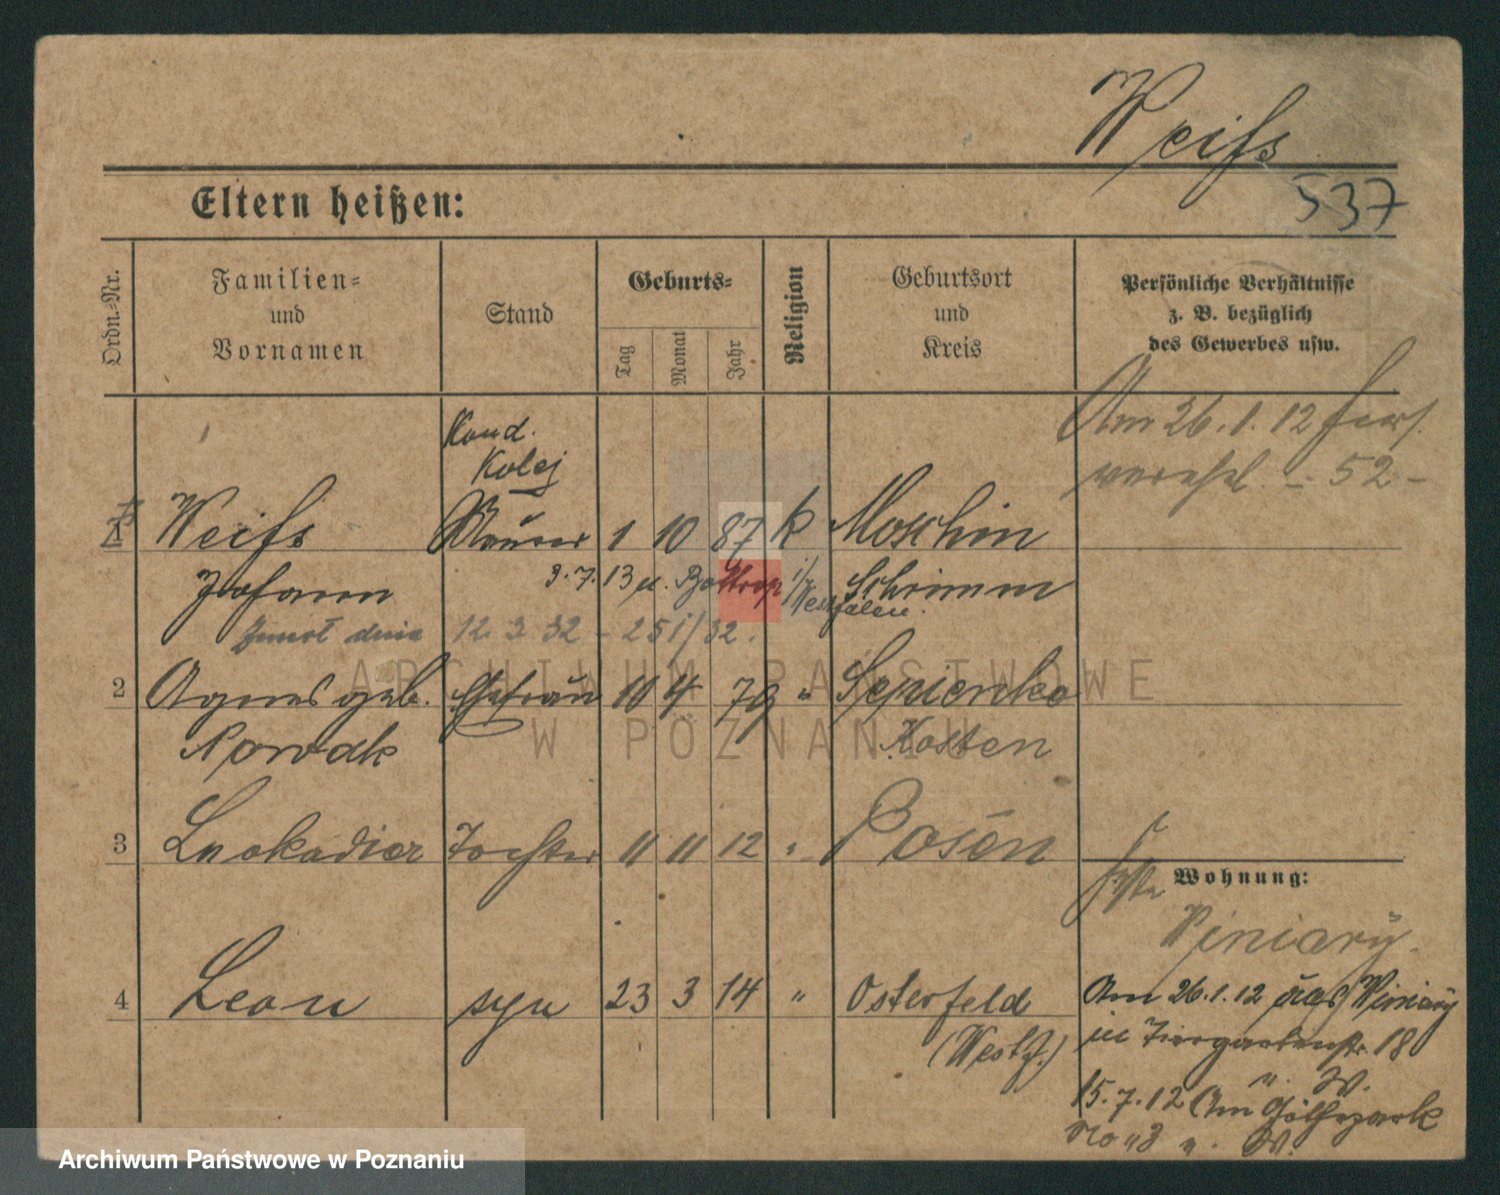 Weiß
537
Eltern heißen:
Ordn.-Nr.
Familien- und Vornamen
Stand
Geburts-
Tag
Monat
Jahr
Religion
Geburtsort und Kreis
Persönliche Verhältnisse z. B. bezüglich des Gewerbes usw.
Am 26.1.12
- 52 -
Kond.
Kolej
1 Weiß Maurer 1 10 87 k Moschin
Johann Schrimm
3.7.13 n. Bottrop i/Westfalen.
Zmarł dnia 12. 3 32 - 251/32.
2 Agnes geb. Ehefrau 10 4 79 " Sepienko
Nowak Kosten
3 Leokadia Tochter 11 11 12 " Posen
Wohnung:
Winiary.
4 Leon syn 23 3 14 " Osterfeld
(Westf.)
Am 26.1.12 Winiary
in Tiergartenstr. 18
15.7.12 Am Gölhepark
No 3
ARCHIWUM PAŃSTWOWE
W POZNANIU
Archiwum Państwowe w Poznaniu